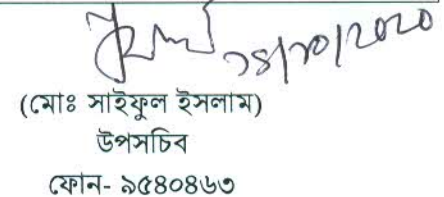 ১৪/১০/২০২০
(মোঃ সাইফুল ইসলাম)
উপসচিব
ফোন- ৯৫৪০৪৬৩